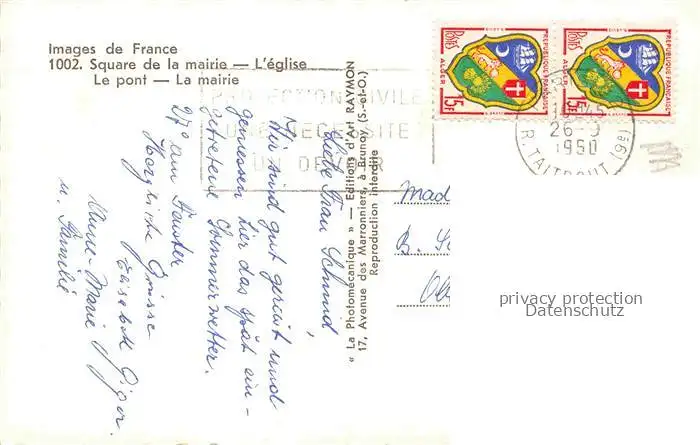 Images de France
1002. Square de la mairie — L'église
Le pont — La mairie
PROTECTION CIVILE
UNE NECESSITE
UN DEVOIR
POSTES
REPUBLIQUE FRANÇAISE
ALGER
15F
POSTES
REPUBLIQUE FRANÇAISE
ALGER
15F
26-9
1960
R. TAITBOUT (9e)
» La Photomécanique » — Editions d'Art RAYMON
17, Avenue des Marronniers, à Brunoy (S.-et-O.)
Reproduction interdite
Liebe Frau Schmid,
Wir sind gut gereist und
geniessen hier das spät ein-
getretene Sommerwetter.
27° am Fenster
Herzliche Grüsse
Elisabeth Giger
Anne-Marie
u. Familie
Mad
privacy protection
Datenschutz